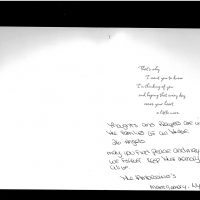 That's why
I want you to know
I'm thinking of you
and hoping that every day
eases your heart
a little more.
Thoughts and Prayers are w
the families of all these
26 Angels
may you find peace and may
we forever keep their memory
alive.
The